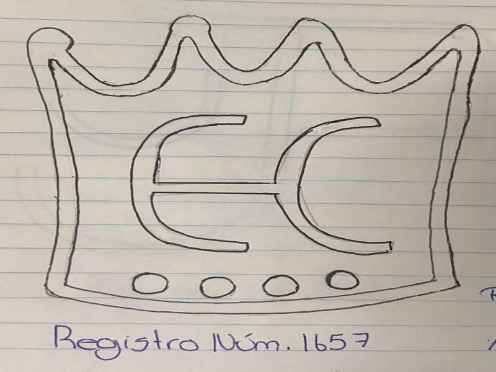 EC
Registro Núm. 1657